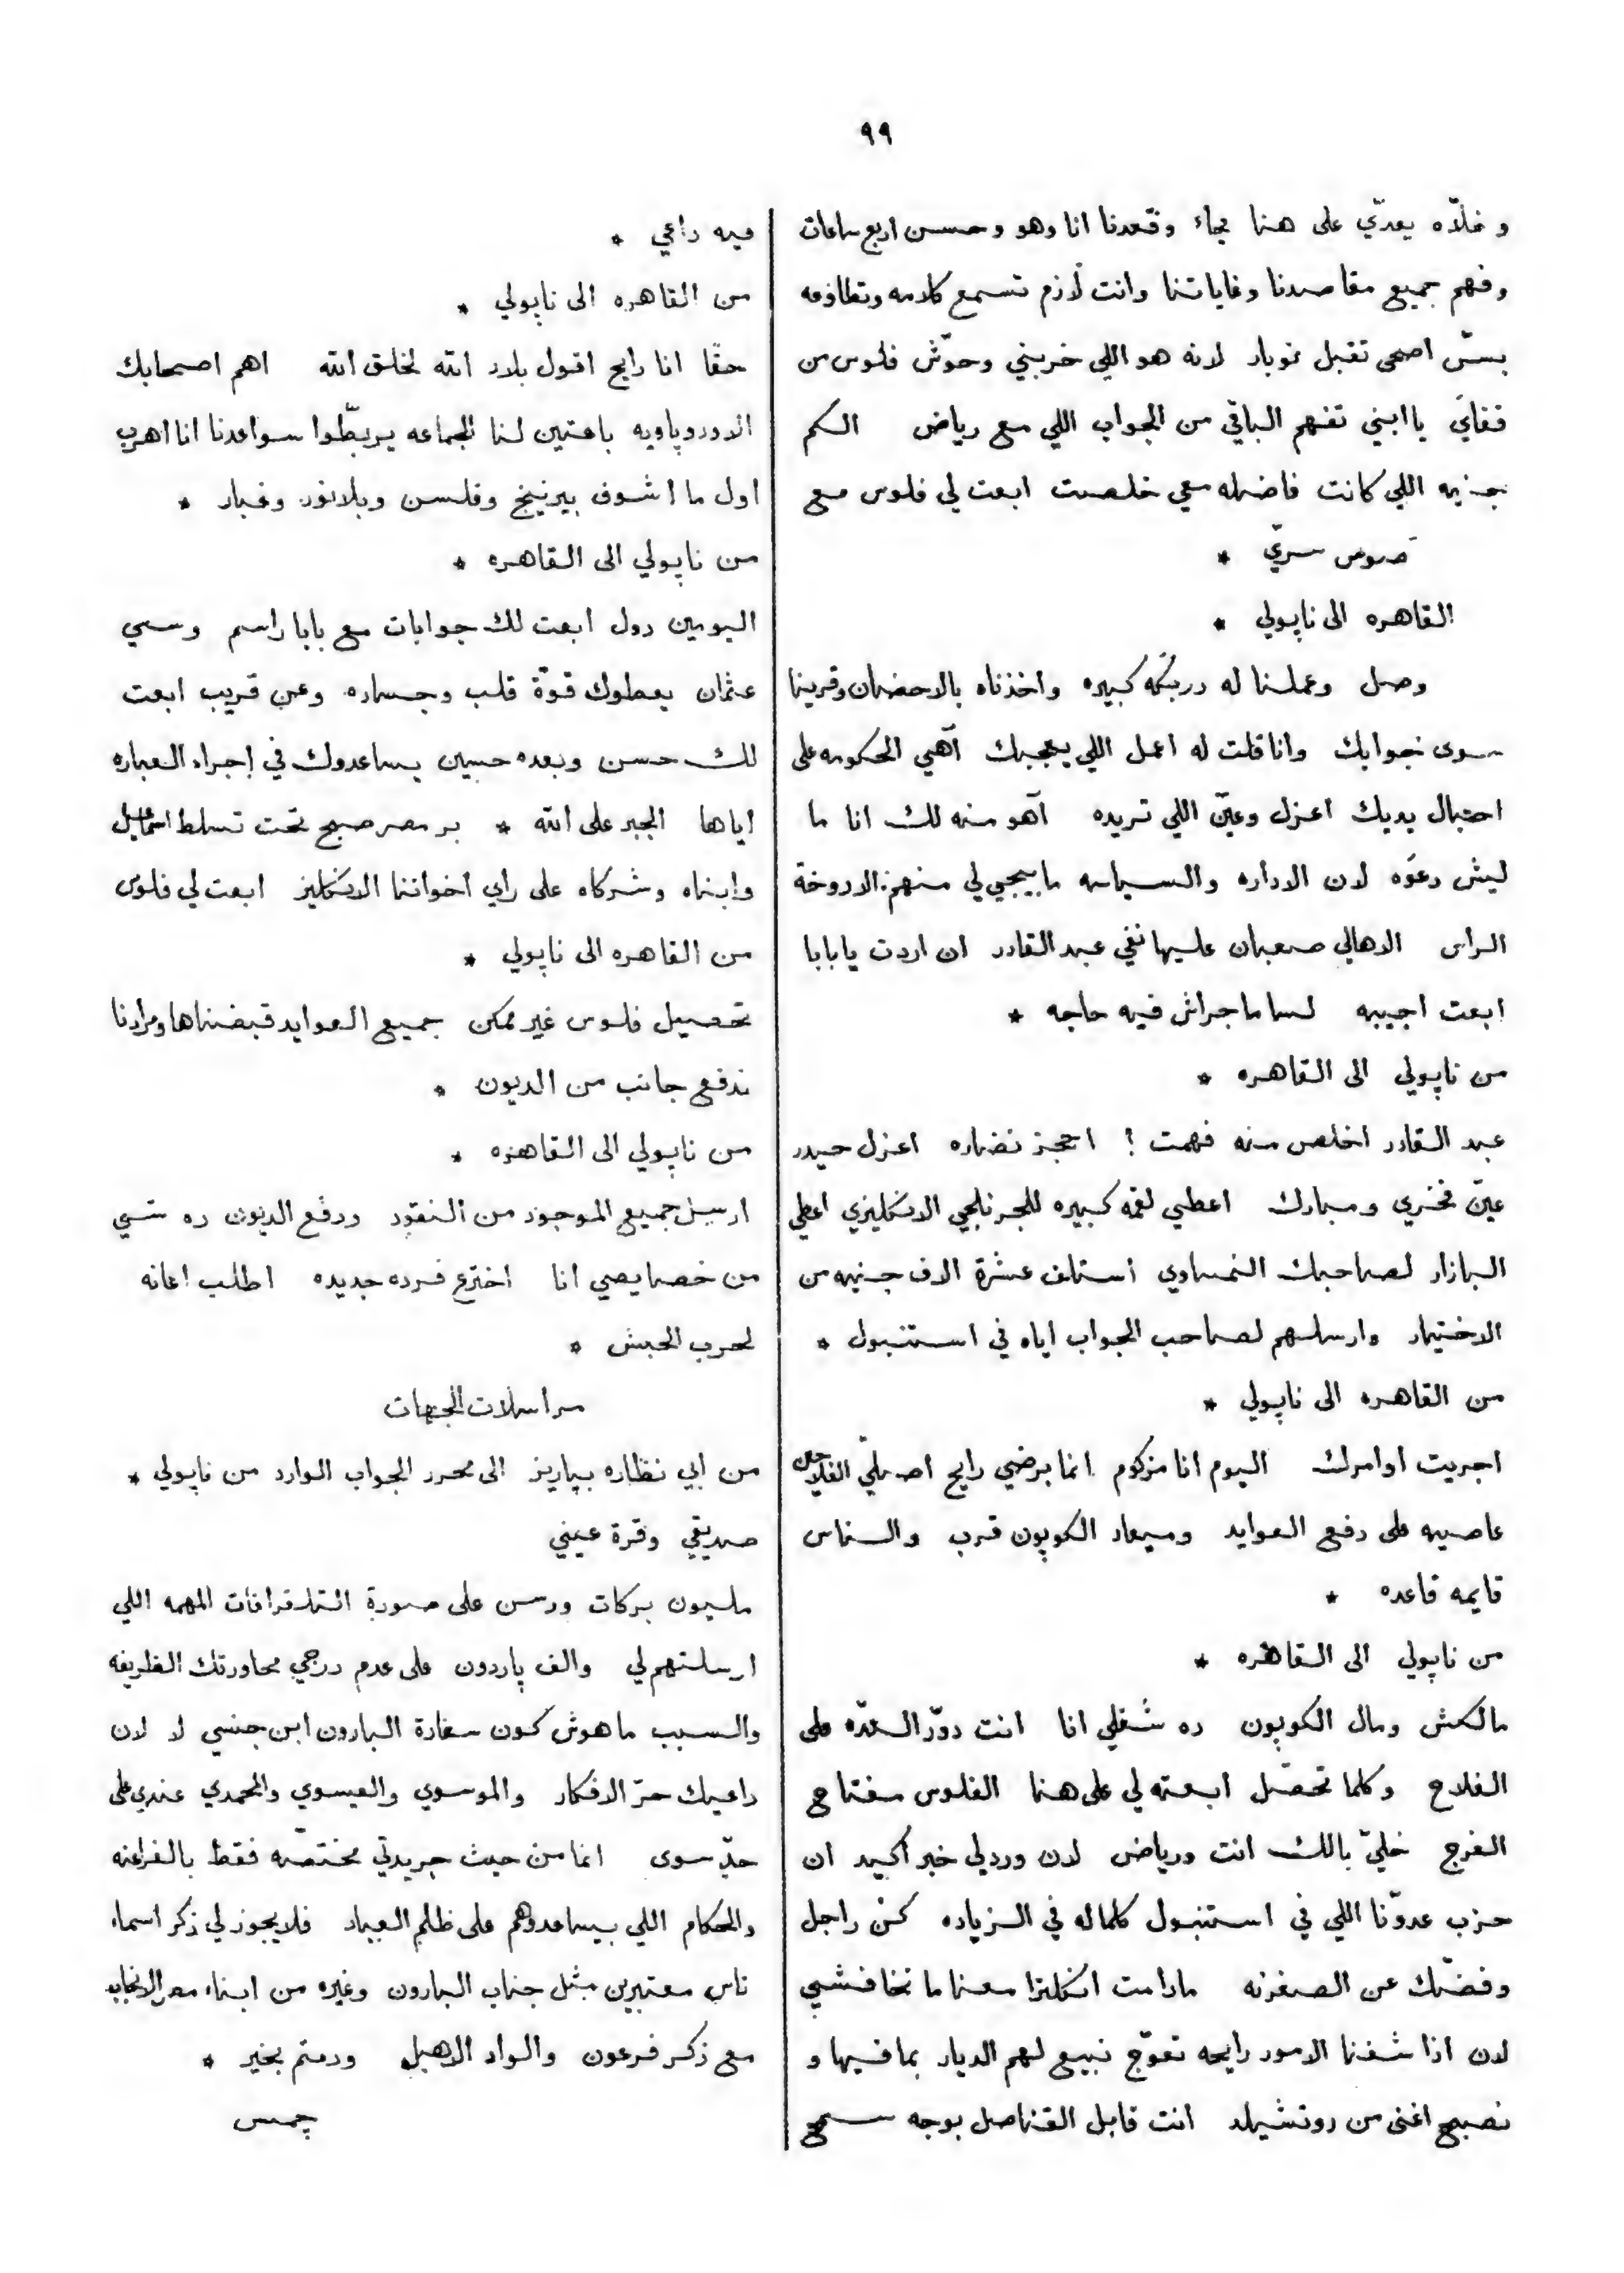 ٩٩
و خلاّه يعدّي على هنا بجاء وقعدنا انا وهو وحسن اربع ساعات
وفهم جميع مقاصدنا وغاياتنا وانت لازم تسمع كلامه وتطاوعه
بسّ اصحى تقبل نوبار لانه هو اللي خربني وحوّش فلوس من
قفايَ يا ابني تفهم الباقي من الجواب اللي مع رياض الكم
جنيه اللي كانت فاضله معي خلصت ابعت لي فلوس مع
صوص سريّ *
القاهره الى ناپولي *
وصل وعملنا له دربكّه كبيره واخذناه بالاحضان وقرينا
سوى جوابك وانا قلت له اعمل اللي يعجبك آهي الحكومه على
احتبال يديك اعزل وعيّن اللي تريده آهو منه لك انا ما
ليش دعوَه لان الاداره والسياسه ما بيجي لي منهم الا دوخة
الراس الاهالي صعبان عليها نفي عبد القادر ان اردت يا بابا
ابعت اجيبه لسا ما جراش فيه حاجه *
من ناپولي الى القاهره *
عبد القادر اخلص منه فهمت ؟ احجز نضاره اعزل حيدر
عيّن فخري ومبارك اعطي لقمه كبيره للجرنلجي الانكليزي اعطي
البازار لصاحبك النمساوي استلف عشرة الاف جنيه من
الاختيار وارسلهم لصاحب الجواب اياه في استنبول *
من القاهره الى ناپولي *
اجريت اوامرك اليوم انا مزكوم انما برضي رايح اصلّي الفلاحين
عاصيه على دفع العوايد وميعاد الكوپون قرب والناس
قايمه قاعده *
من ناپولي الى القاهره *
مالكش ومال الكوپون ده شغلي انا انت دوّر العدّه على
الفلاح وكلما تحصّل ابعته لي على هنا الفلوس مفتاح
الفرج خليّ بالك انت ورياض لان ورد لي خبر اكيد ان
حزب عدوّنا اللي في استنبول كلماله في الزياده كنْ راجل
وفضّك عن الصغرنه مادامت انكلترا معنا ما تخافشي
لان اذا شفنا الامور رايحه تعوّج نبيع لهم الديار بما فيها و
نصبح اغنى من روتشيلد انت قابل القناصل بوجه سمح
فيه داعي *
من القاهره الى ناپولي *
حقّا انا رايح اقول بلاد الله لخلق الله اهم اصحابك
الاوروپاويه باعتين لنا الجماعه يربطّوا سواعدنا انا اهرب
اول ما اشوف بيرنينج وفلسن وبلانور وغبار *
من ناپولي الى القاهره *
اليومين دول ابعت لك جوابات مع بابا راسم وسي
عثمان يعطوك قوّة قلب وجساره وعن قريب ابعت
لك حسن وبعده حسين يساعدوك في إجراء العباره
اياها الجبر على الله * بر مصر صبح تحت تسلط اسماعيل
وابناه وشركاه على راي اخواننا الانكليز ابعت لي فلوس
من القاهره الى ناپولي *
تحصيل فلوس غير ممكن جميع العوايد قبضناها ومرادنا
ندفع جانب من الديون *
من ناپولي الى القاهره *
ارسل جميع الموجود من النقود ودفع الديون ده شي
من خصايصي انا اخترع فرده جديده اطلب اعانه
لحرب الحبش *
مراسلات الجهات
من ابي نظاره بپاريز الى محرر الجواب الوارد من ناپولي *
صديقي وقرة عيني
مليون بركات ورسن على صورة التلغرافات المهمه اللي
ارسلتهم لي والف پاردون على عدم درجي محاورتك الظريفه
والسبب ما هوش كون سغارة البارون ابن جنسي لا لان
داعيك حرّ الافكار والموسوي والعيسوي والمحمدي عندي على
حدّ سوى انما من حيث جريدتي مختصّه فقط بالفراعنه
والحكام اللي بيساعدوهم على ظلم العباد فلا يجوز لي ذكر اسماء
ناس معتبرين مثل جناب البارون وغيره من ابناء مصر الانجاب
مع ذكر فرعون والواد الاهبل ودمتم بخير *
جمس